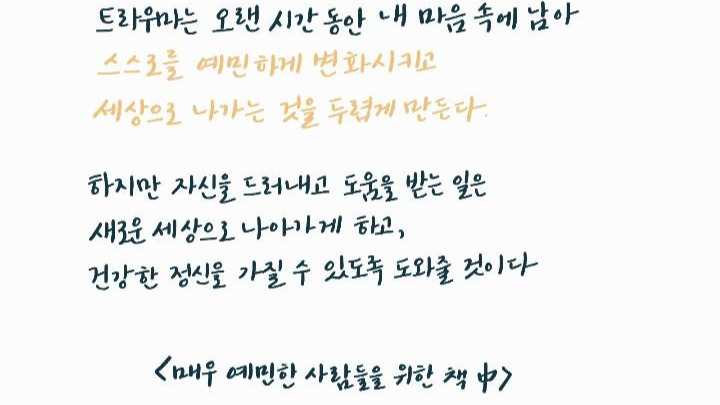 트라우마는 오랜 시간 동안 내 마음 속에 남아
스스로를 예민하게 변화시키고
세상으로 나가는 것을 두렵게 만든다.
하지만 자신을 드러내고 도움을 받는 일은
새로운 세상으로 나아가게 하고,
건강한 정신을 가질 수 있도록 도와줄 것이다
<매우 예민한 사람들을 위한 책 中>